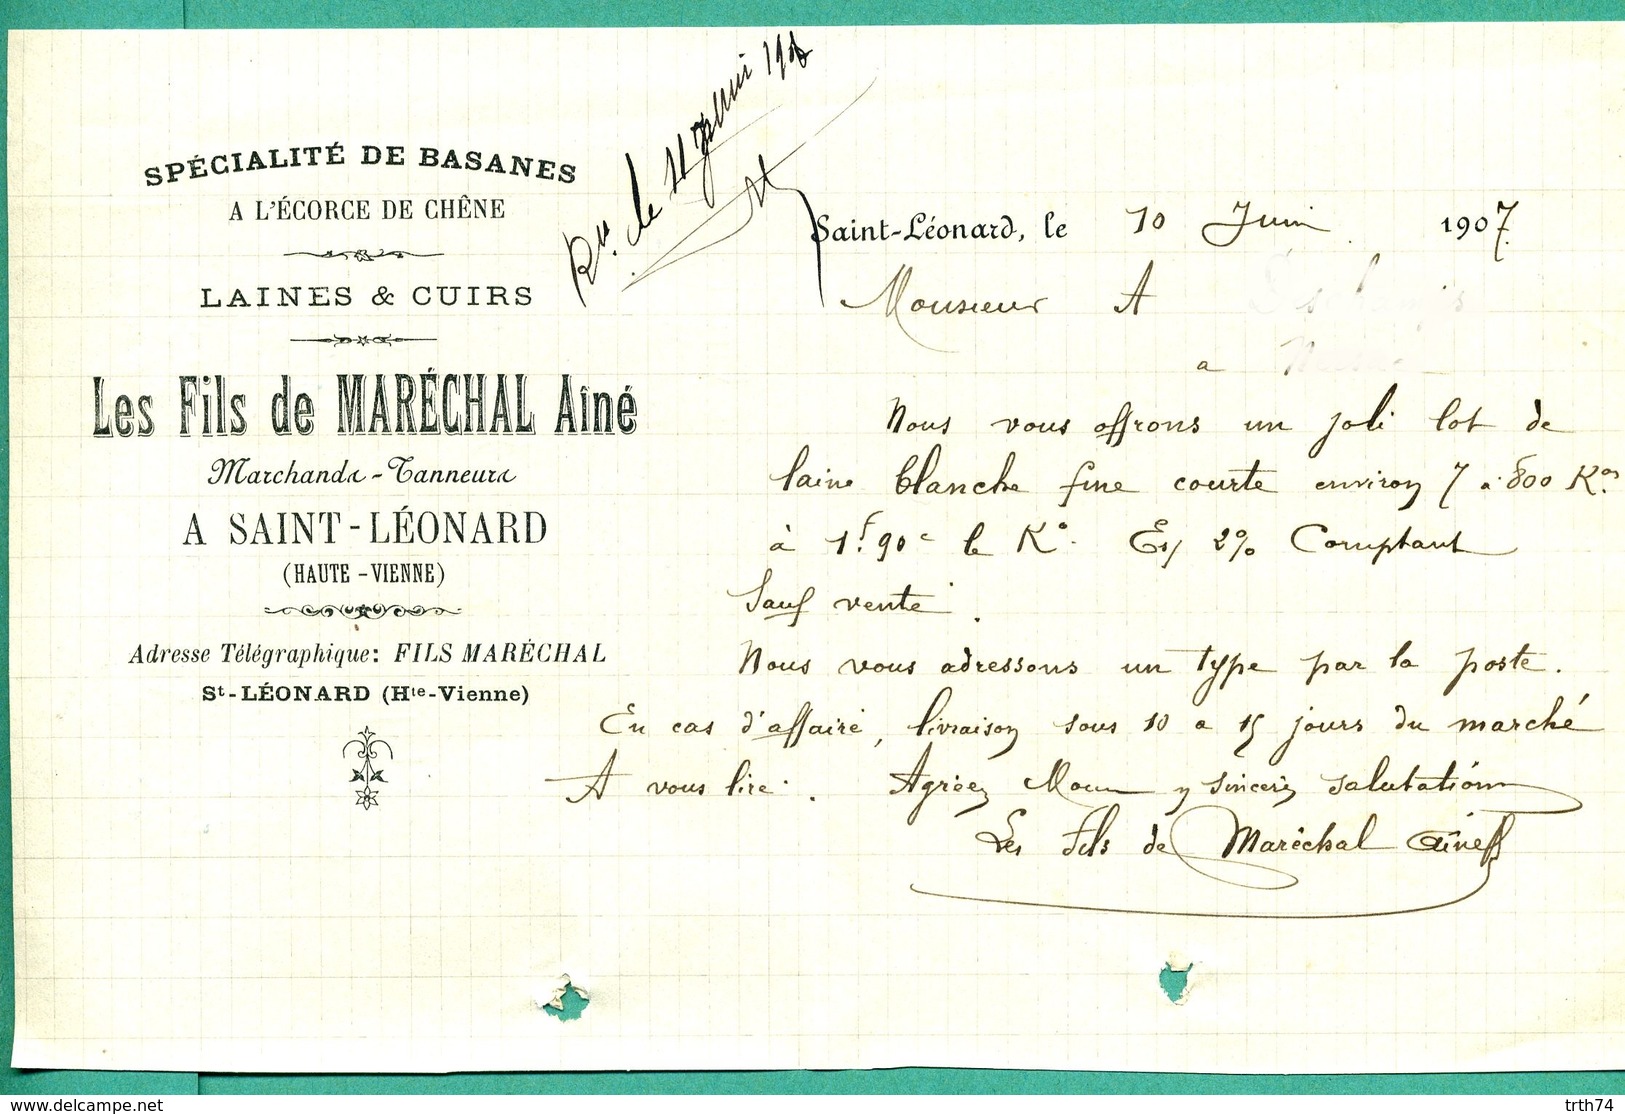 SPÉCIALITÉ DE BASANES
A L'ÉCORCE DE CHÊNE
LAINES & CUIRS
Les Fils de MARÉCHAL Aîné
Marchands-Tanneurs
A SAINT-LÉONARD
(HAUTE-VIENNE)
Adresse Télégraphique: FILS MARÉCHAL
St-LÉONARD (Hte-Vienne)
de 11
Saint-Léonard, le 10 Juin 1907.
Monsieur A
a
Nous vous offrons un joli lot de
laine blanche fine courte environ 7 à 800 Kos
à 1f.90c le Ko. Es/ 2% Comptant
Sauf vente.
Nous vous adressons un type par la poste.
En cas d'affaire, livraison sous 10 a 15 jours du marché
A vous lire. Agréez Monsieur sincères salutations
Les Fils de Maréchal aîné
Delcampe.net
trth74